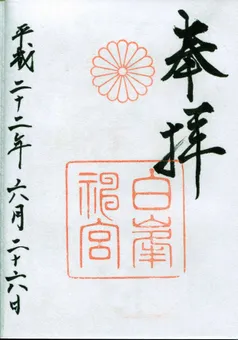 奉拝
白峯
神宮
平成二十二年六月二十六日